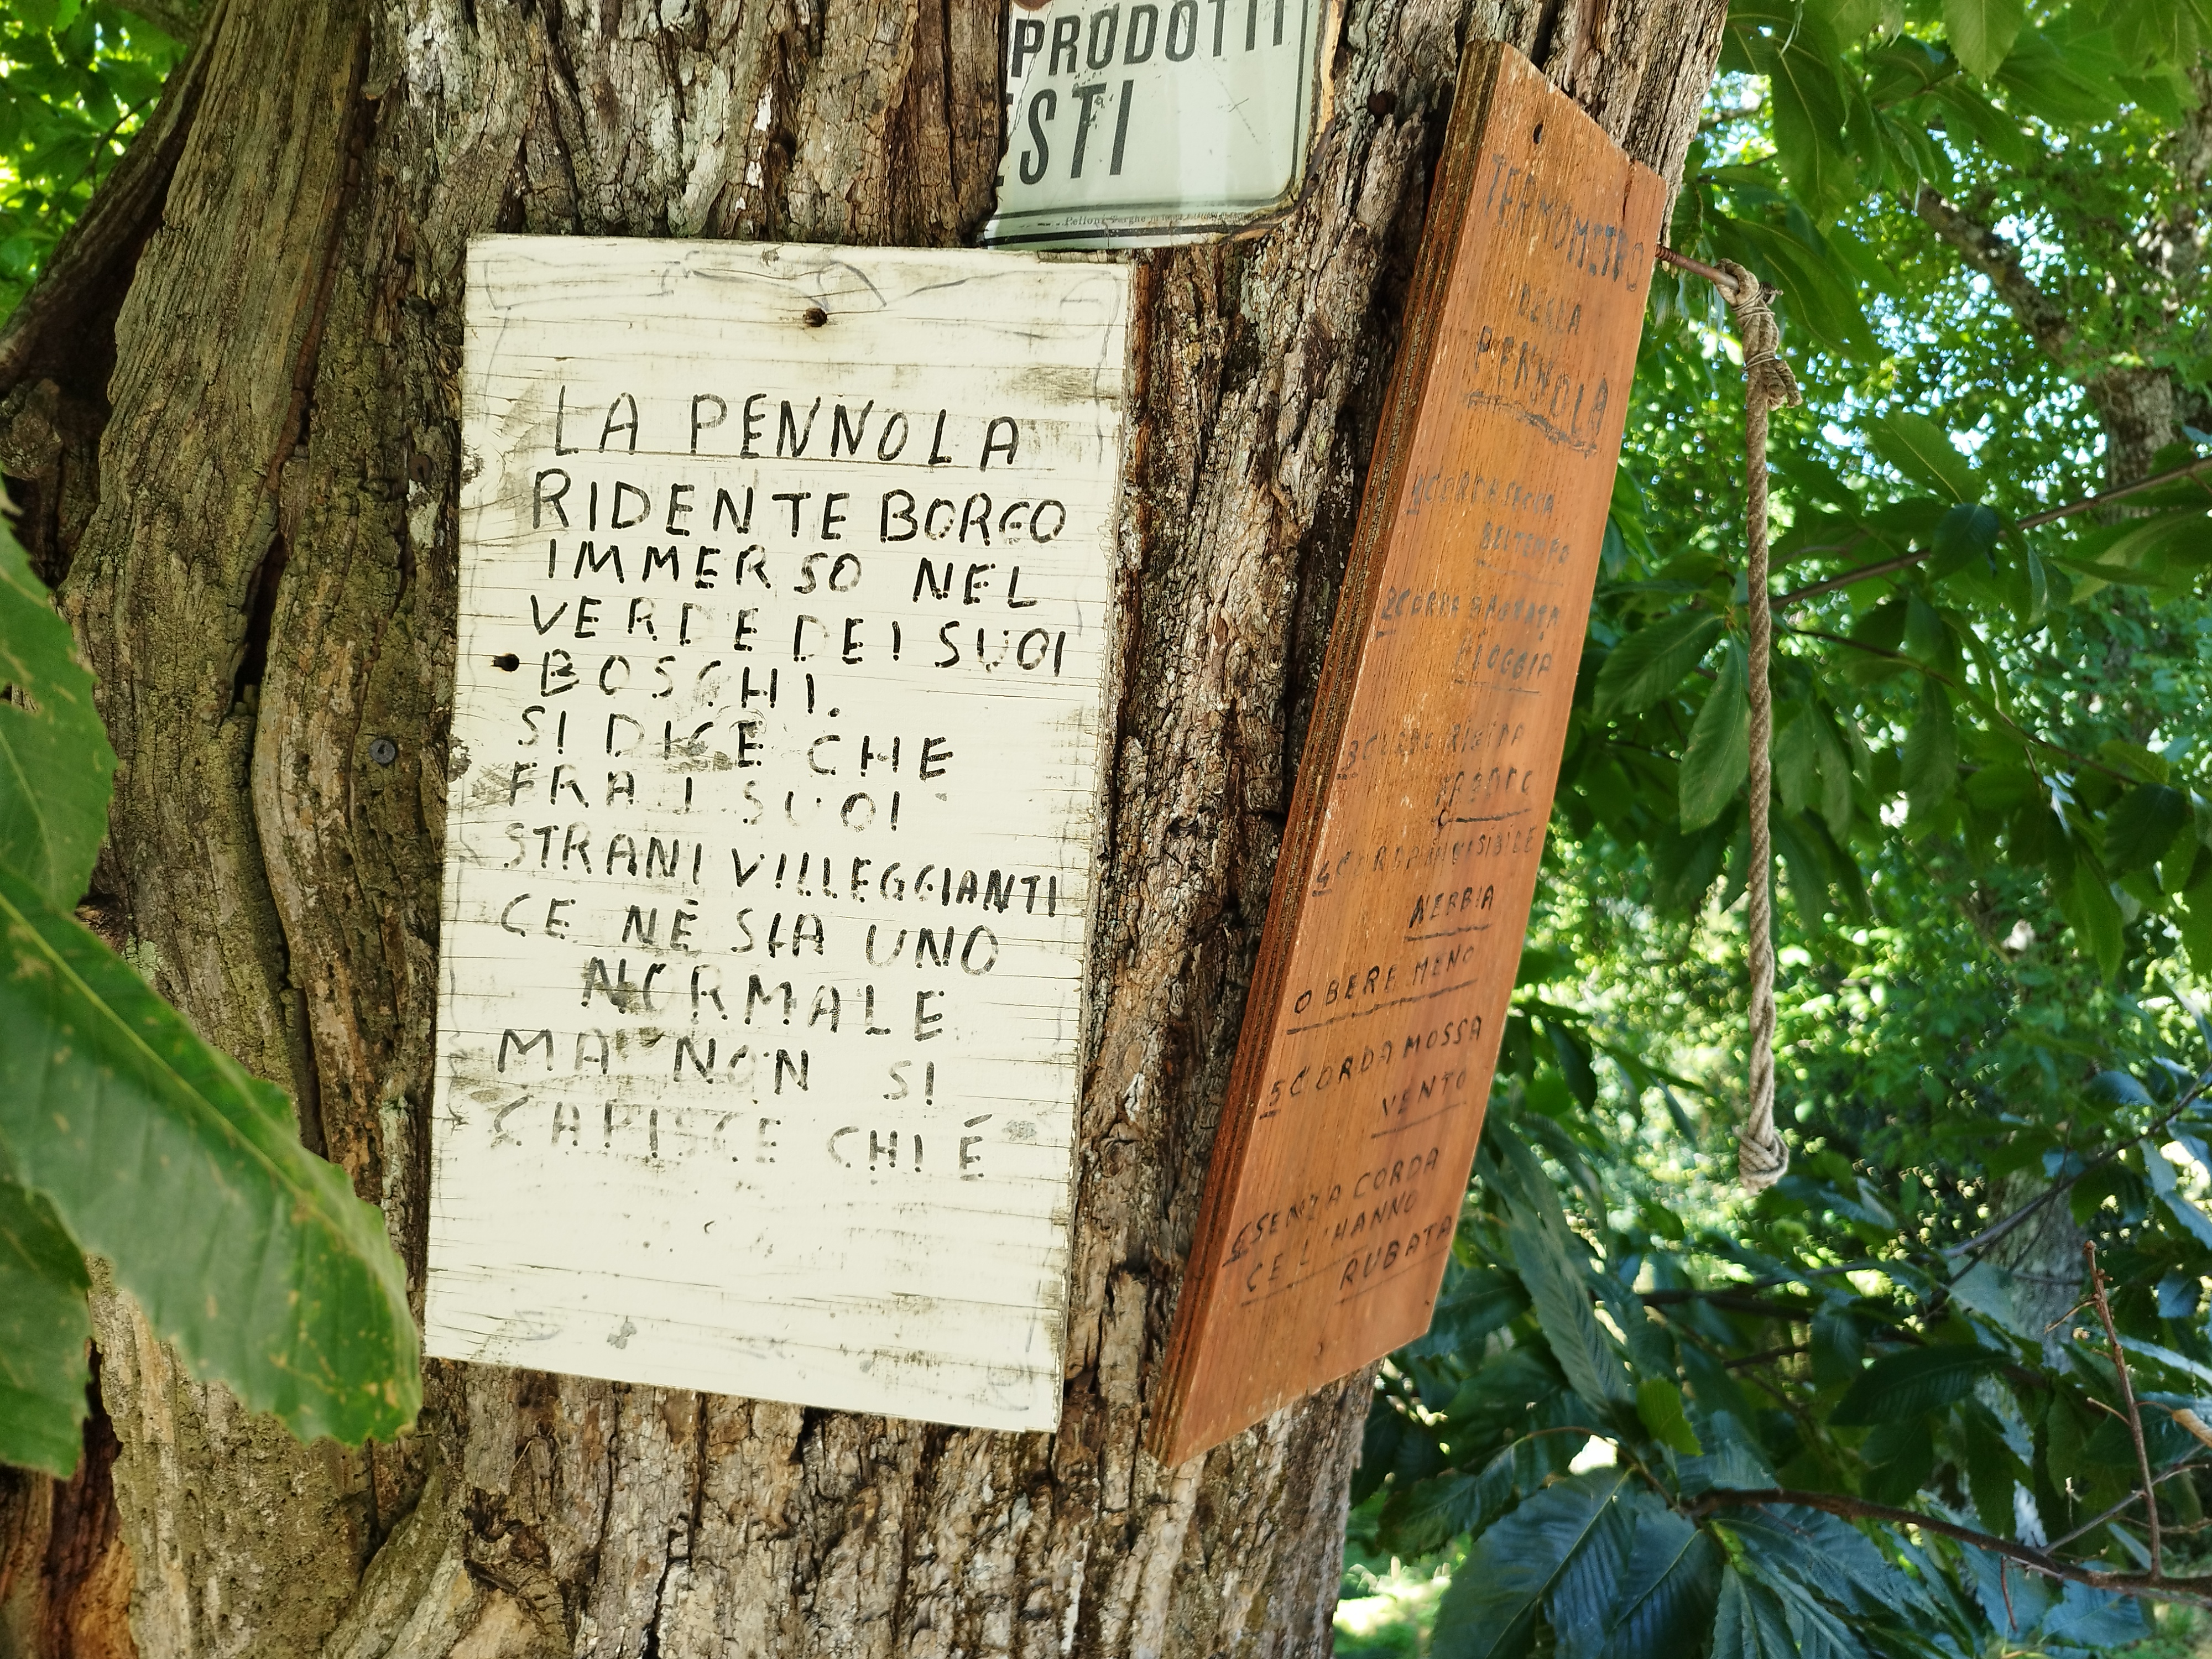 PRODOTTI
ESTI
LA PENNOLA
RIDENTE BORGO
IMMERSO NEL
VERDE DEI SUOI
BOSCHI.
SI DICE CHE
FRA I SUOI
STRANI VILLEGGIANTI
CE NÉ SIA UNO
NORMALE
MA NON SI
CAPISCE CHI É
TERMOMETRO
DELLA
PENNOLA
1 CORDA SECCA
BELTEMPO
2 CORDA BAGNATA
PIOGGIA
3 CORDA RIGIDA
4 CORDA INVISIBILE
NEBBIA
O BERE MENO
5 CORDA MOSSA
VENTO
6 SENZA CORDA
CE L'HANNO
RUBATA